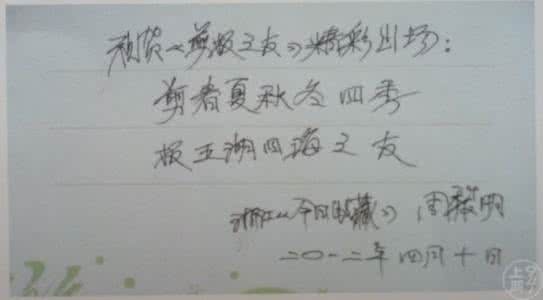 祝贺《剪报之友》精彩出场：
剪春夏秋冬四季
报五湖四海之友
浙江《今日收藏》 周 明
二〇一二年四月十日